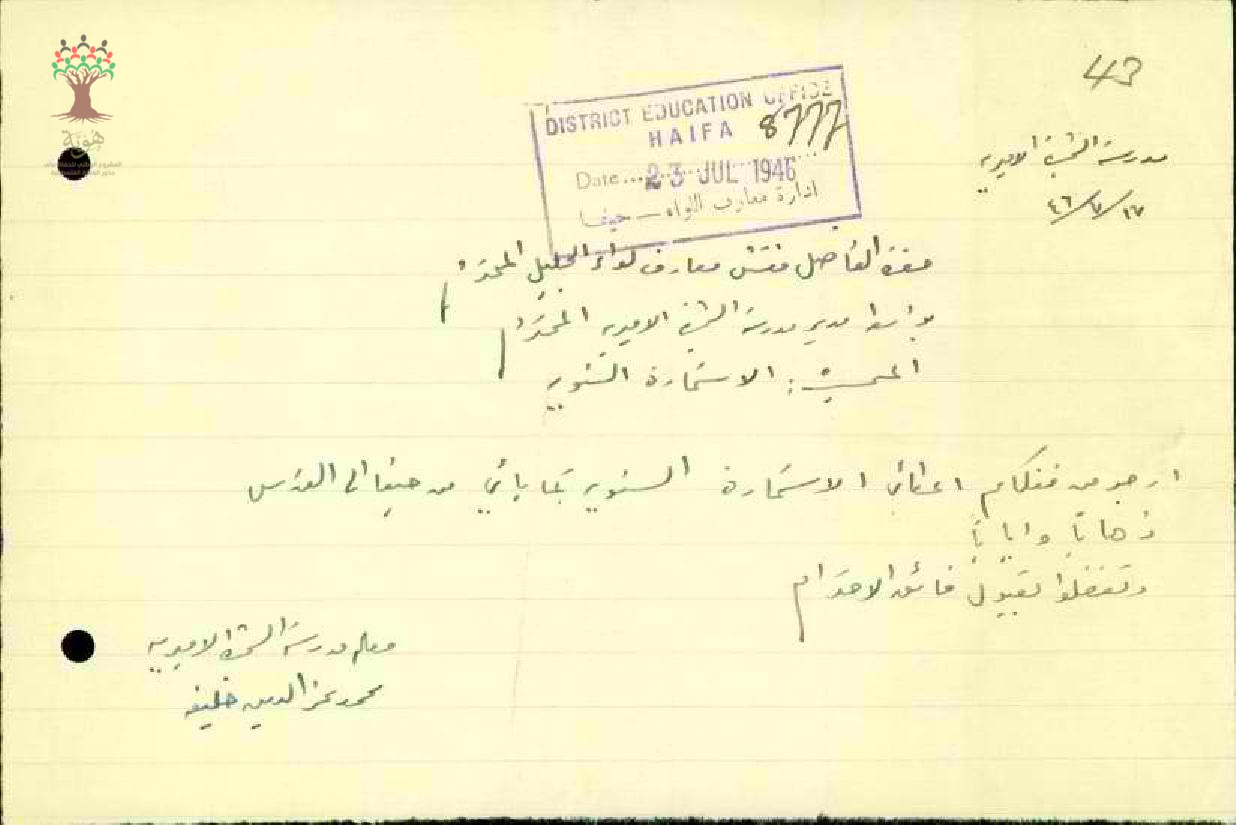 هوية
43
DISTRICT EDUCATION OFFICE
HAIFA 8777
Date ... 23 JUL 1946
ادارة معارف اللواء — حيفا
مدرسة الاميرية
١٧/٧/٤٦
حضرة الفاضل مفتش معارف لواء الجليل المحترم
بواسطة مدير مدرسة الاميرية المحترم
الاستمارة السنوية
ارجو من فضلكم اعطائي الاستمارة السنوية من حيفا الى القدس
ذهاباً واياباً
وتفضلوا بقبول فائق الاحترام
معلم مدرسة الاميرية
محمد عز الدين خليفه